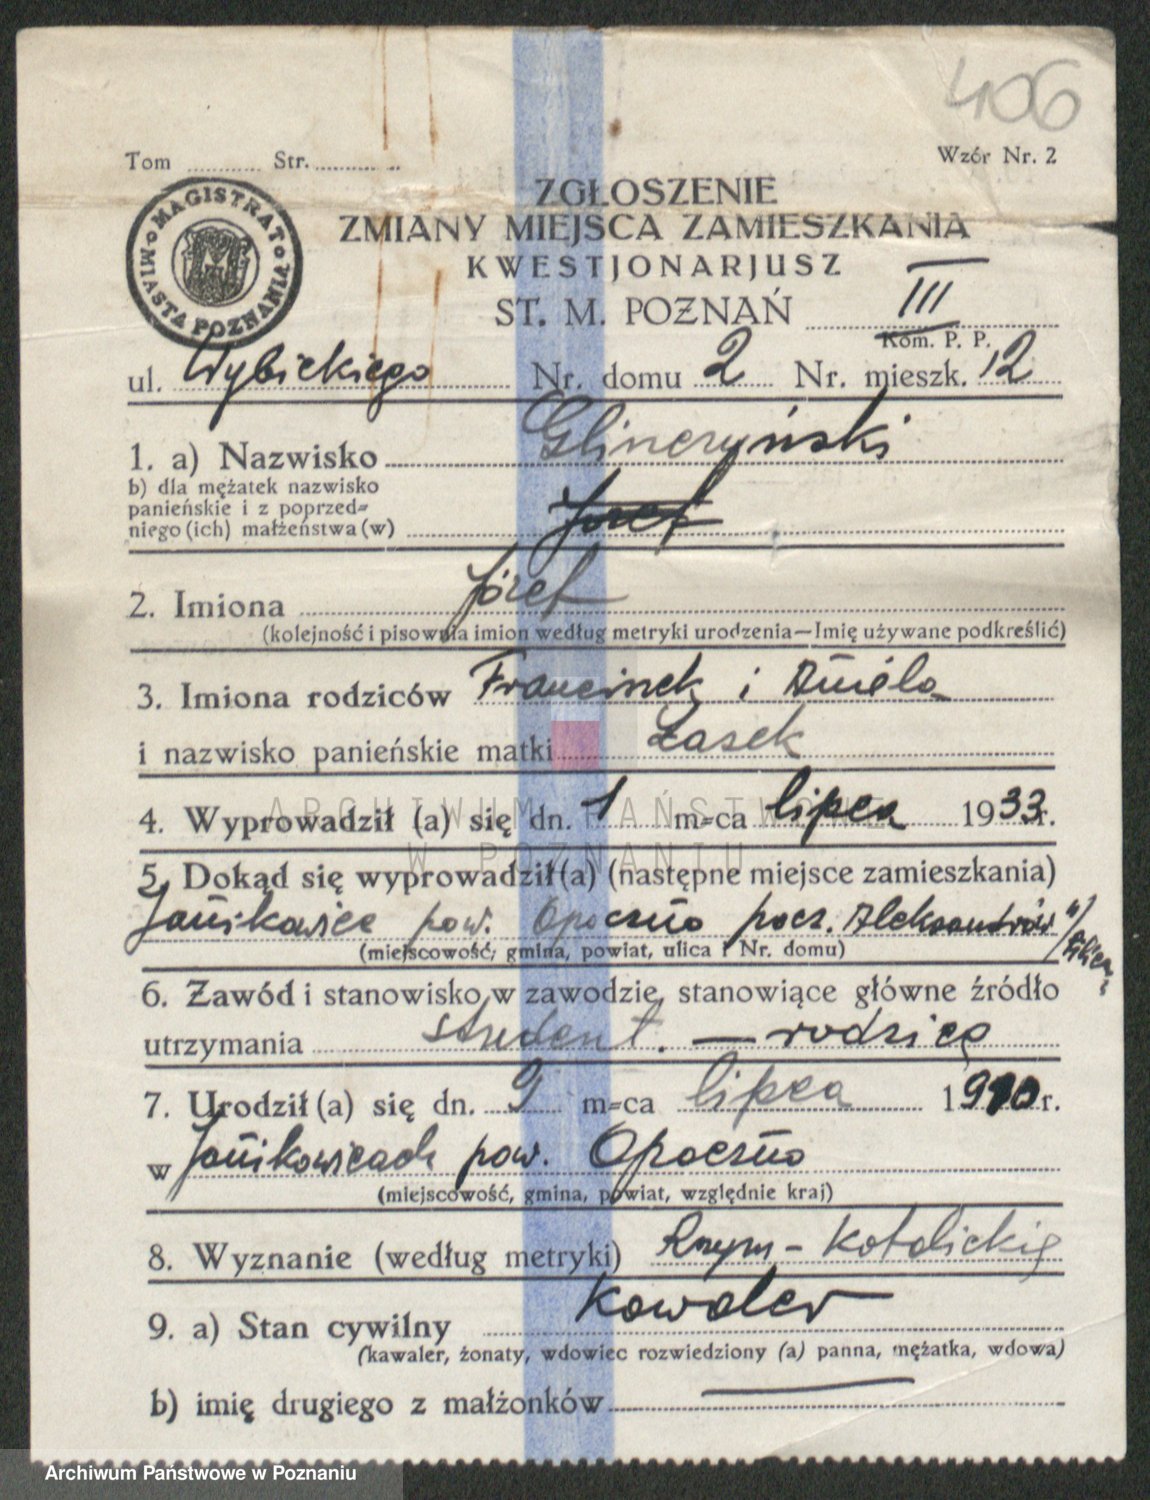 406
Tom ........... Str. ...............
Wzór Nr. 2
MAGISTRAT MIASTA POZNANIA
ZGŁOSZENIE
ZMIANY MIEJSCA ZAMIESZKANIA
KWESTJONARJUSZ
ST. M. POZNAŃ III
Kom. P. P.
ul. Wybickiego Nr. domu 2 Nr. mieszk. 12
1. a) Nazwisko Glinczyński
b) dla mężatek nazwisko
panieńskie i z poprzed=
niego (ich) małżeństwa (w) Józef
2. Imiona Józef
(kolejność i pisownia imion według metryki urodzenia—Imię używane podkreślić)
3. Imiona rodziców Franciszek i Aniela
i nazwisko panieńskie matki Łasek
4. Wyprowadził (a) się dn. 1 m=ca lipca 1933 r.
5. Dokąd się wyprowadził(a) (następne miejsce zamieszkania)
Janikowice pow. Opoczno pocz. Aleksandrów
(miejscowość, gmina, powiat, ulica i Nr. domu)
6. Zawód i stanowisko w zawodzie, stanowiące główne źródło
utrzymania student. — rodzice
7. Urodził (a) się dn. 9 m=ca lipca 1910 r.
w Janikowicach pow. Opoczno
(miejscowość, gmina, powiat, względnie kraj)
8. Wyznanie (według metryki) Rzym - Katolickie
9. a) Stan cywilny Kawaler
(kawaler, żonaty, wdowiec rozwiedziony (a) panna, mężatka, wdowa)
b) imię drugiego z małżonków
ARCHIWUM PAŃSTWOWE
W POZNANIU
Archiwum Państwowe w Poznaniu